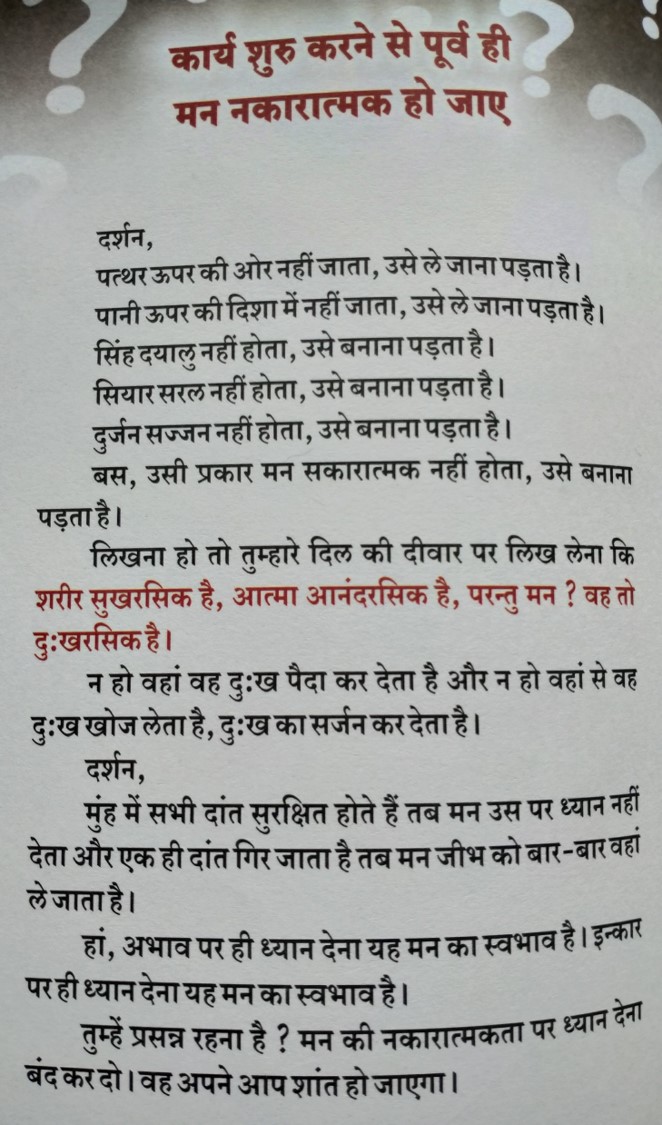 कार्य शुरु करने से पूर्व ही
मन नकारात्मक हो जाए
दर्शन,
पत्थर ऊपर की ओर नहीं जाता, उसे ले जाना पड़ता है।
पानी ऊपर की दिशा में नहीं जाता, उसे ले जाना पड़ता है।
सिंह दयालु नहीं होता, उसे बनाना पड़ता है।
सियार सरल नहीं होता, उसे बनाना पड़ता है।
दुर्जन सज्जन नहीं होता, उसे बनाना पड़ता है।
बस, उसी प्रकार मन सकारात्मक नहीं होता, उसे बनाना
पड़ता है।
लिखना हो तो तुम्हारे दिल की दीवार पर लिख लेना कि
शरीर सुखरसिक है, आत्मा आनंदरसिक है, परन्तु मन ? वह तो
दुःखरसिक है।
न हो वहां वह दुःख पैदा कर देता है और न हो वहां से वह
दुःख खोज लेता है, दुःख का सर्जन कर देता है।
दर्शन,
मुंह में सभी दांत सुरक्षित होते हैं तब मन उस पर ध्यान नहीं
देता और एक ही दांत गिर जाता है तब मन जीभ को बार-बार वहां
ले जाता है।
हां, अभाव पर ही ध्यान देना यह मन का स्वभाव है। इन्कार
पर ही ध्यान देना यह मन का स्वभाव है।
तुम्हें प्रसन्न रहना है ? मन की नकारात्मकता पर ध्यान देना
बंद कर दो। वह अपने आप शांत हो जाएगा।